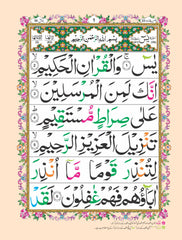 بسم الله الرحمن الرحيم
يٰسٓ ۚ وَالْقُرْاٰنِ الْحَكِيْمِ
اِنَّكَ لَمِنَ الْمُرْسَلِيْنَ
عَلٰى صِرَاطٍ مُّسْتَقِيْمٍ
تَنْزِيْلَ الْعَزِيْزِ الرَّحِيْمِ
لِتُنْذِرَ قَوْمًا مَّاۤ اُنْذِرَ
اٰبَآؤُهُمْ فَهُمْ غٰفِلُوْنَ لَقَدْ